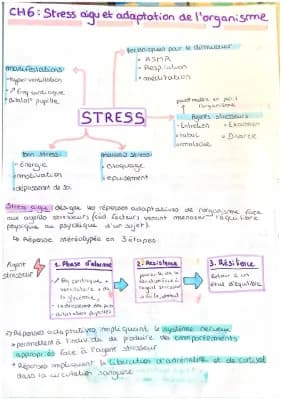 CH6: Stress aigu et adaptation de l'organisme
techniques pour le diminuer
• ASMR
• Respiration
• méditation
manifestations
• hyperventilation
• ↑ frq cardiaque
• pupille
STRESS
agents stresseurs
• Entretien • Examen
• tabac • Divorce
• maladie
bon stress
• énergie
• motivation
• dépassement de soi
mauvais stress
• bloquage
• épuisement
Stress aigu: désigne les réponses adaptatives de l'organisme face
aux agents stresseurs (càd facteurs venant menacer l'équilibre
physique ou psychique d'un sujet).
↳ Réponse stéréotypée en 3 étapes:
Agent stresseur
1. Phase d'alarme
↑ frq cardiaque,
ventilatoire + de
la glycémie,
2. Résistance
3. Résilience
Retour à un
état d'équilibre
→ Réponses adaptatives impliquant le système nerveux
• permettent à l'individu de produire des comportements
appropriés face à l'agent stresseur
• Réponses impliquant la libération d'adrénaline et de cortisol
dans la circulation sanguine